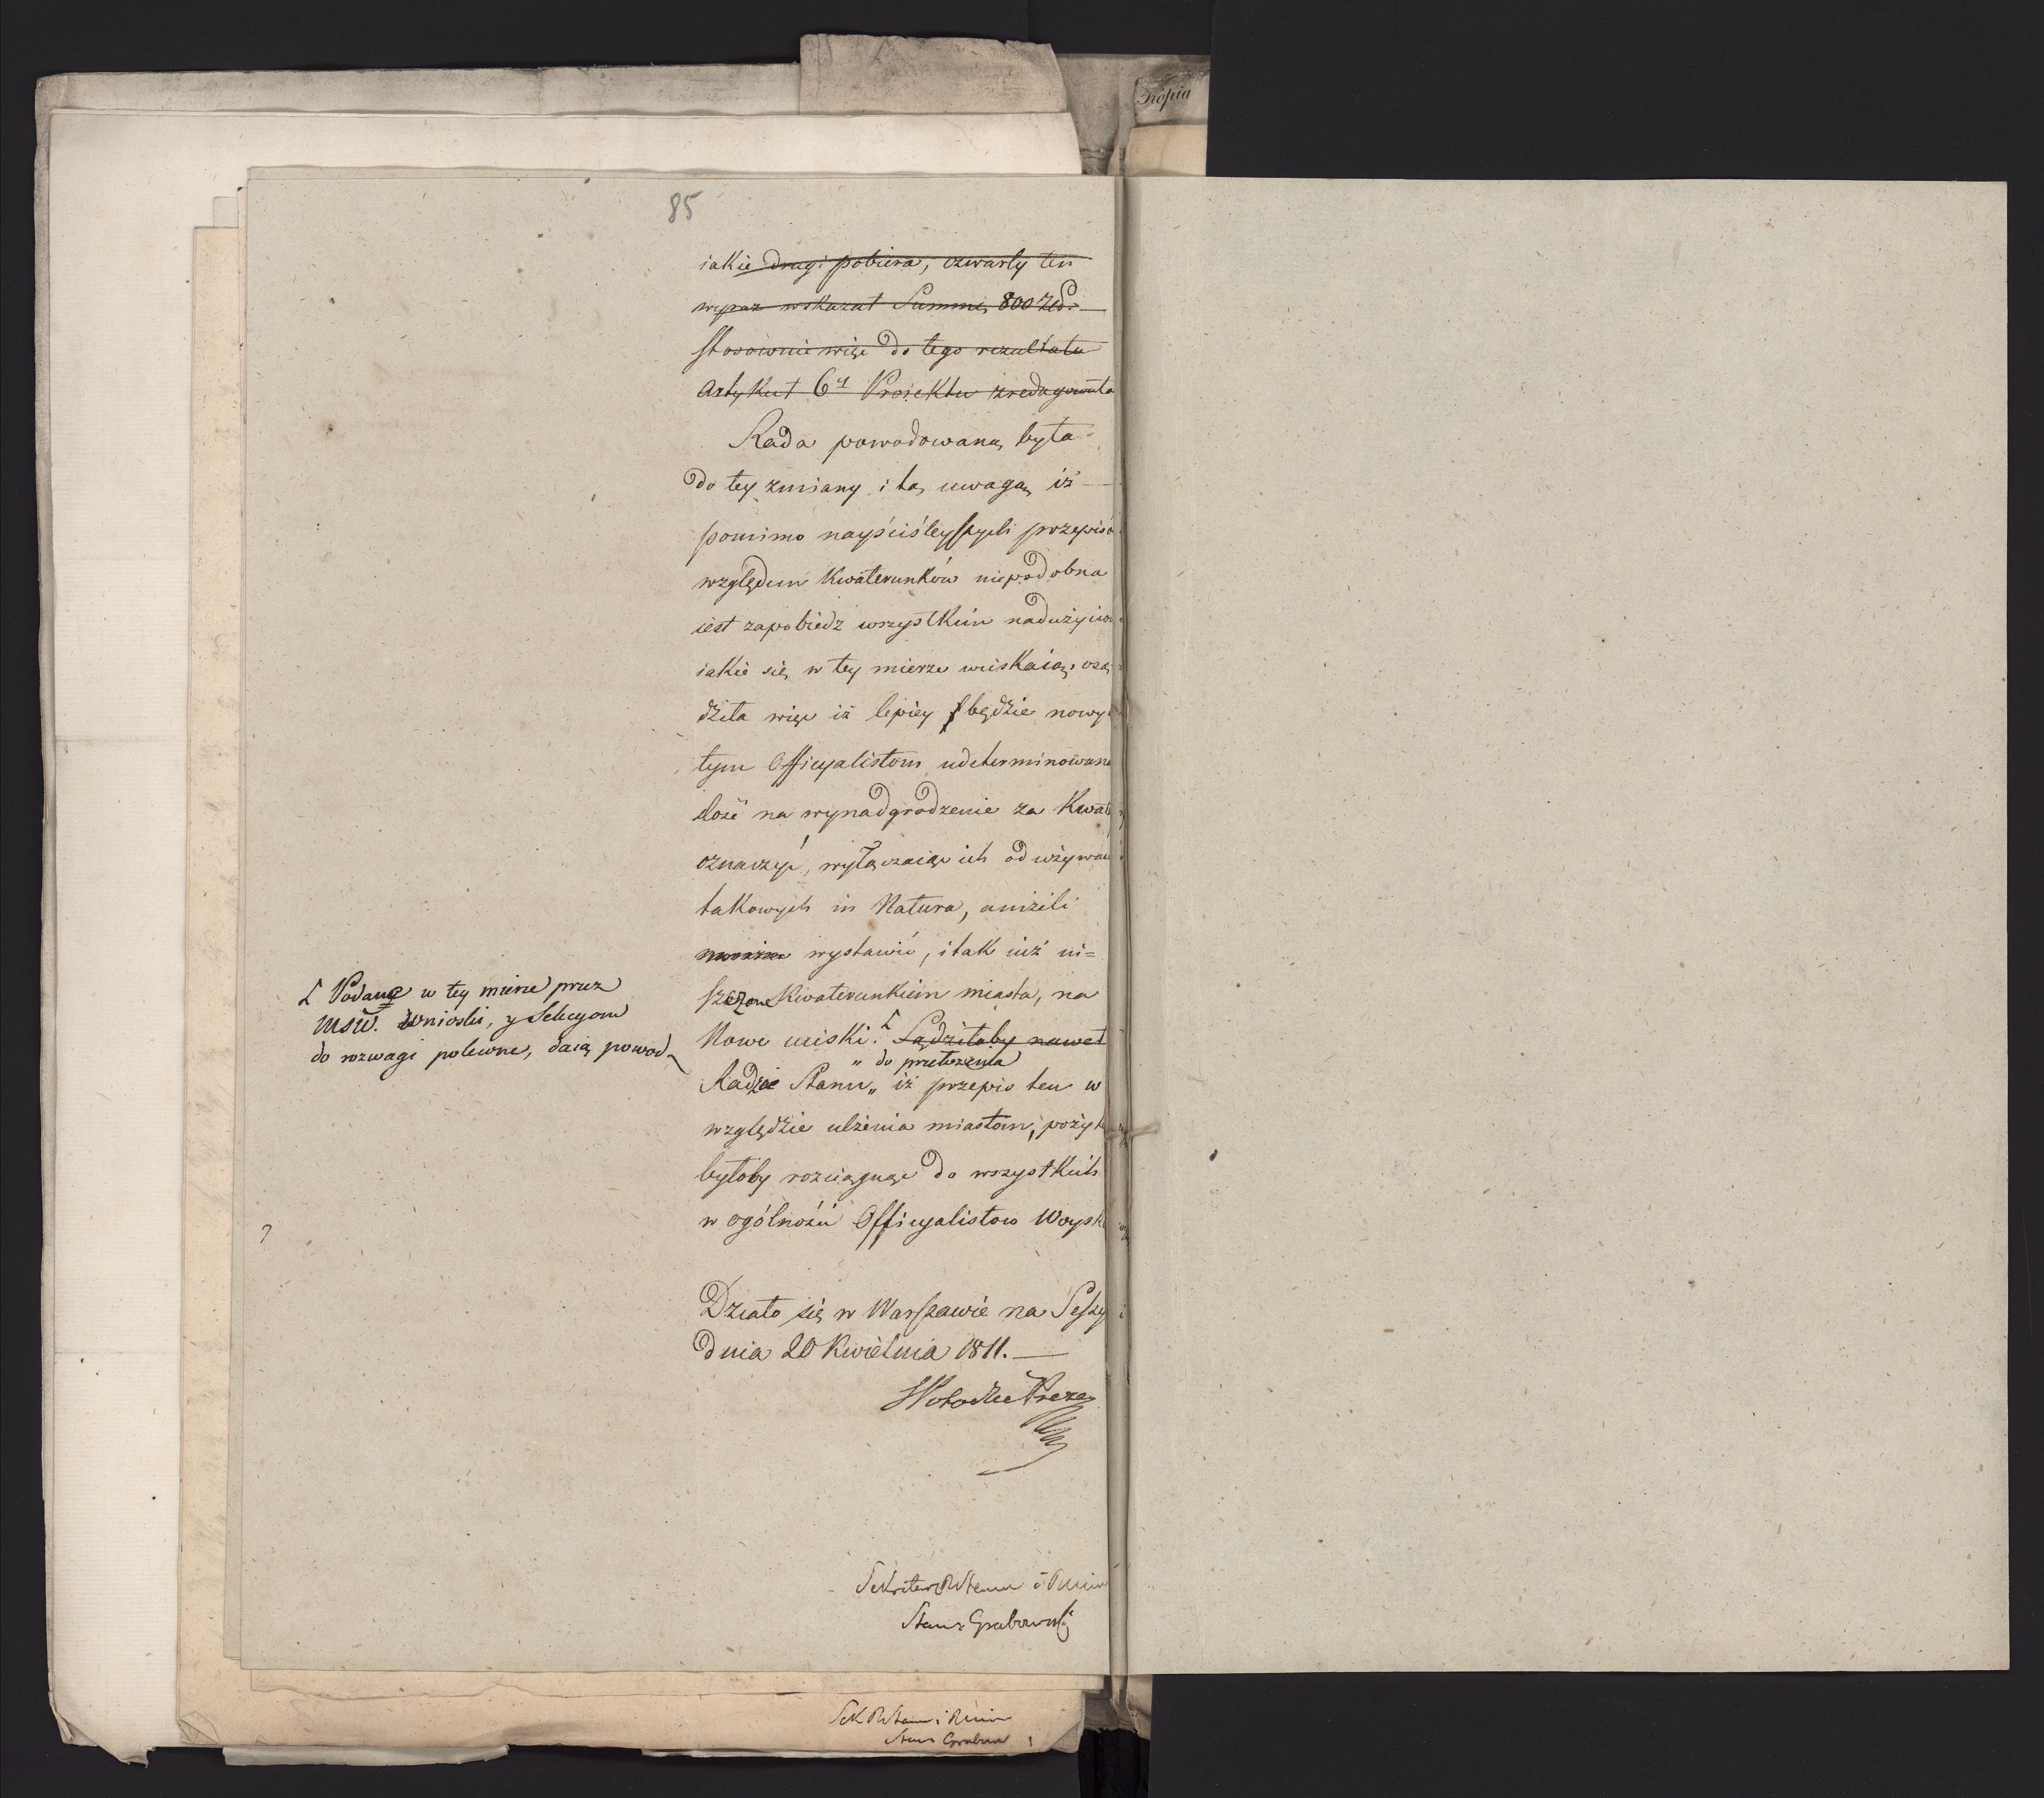 Kopia
85
iakie drugi pobiera, czwarty ten
wyraz wskazał Summę 800 Złł.
stosownie więc do tego rezultatu
Artykuł 6ty Proiektu zredagowała
Rada powodowaną była
do tey zmiany i tą uwagą iż
pomimo nayściśleyszych przepisó
względem Kwaterunków niepodobna
iest zapobiedz wszystkim nadużycio
iakie się w tey mierze wciskaią, osą
dziła więc iż lepiey będzie nowy
tym Officyalistom udeterminowaną
ilość na wynadgrodzenie za Kwat
oznaczyć, wyłączaiąc ich od używan
takowych in Natura, aniżeli
wystawić, i tak iuż ni=
szczone Kwaterunkiem miasta, na
Nowe uciski. Sądziłaby nawet
„ do przełożenia
Radzie Stanu „ iż przepis ten w
względzie ulżenia miastom, pożyt
byłoby rozciągnąć do wszystkich
w ogólności Officyalistow Woysk
Ⱡ Podane w tey mierze przez
MSW. wnioski, y Sekcyom
do rozwagi polecone, daią powod
Działo się w Warszawie na Sessy
dnia 20 Kwietnia 1811.
Prezes
Sekretarz RStanu i RMin
Stan: Grabowski
Sek RStanu i RMin
Stan Grabow